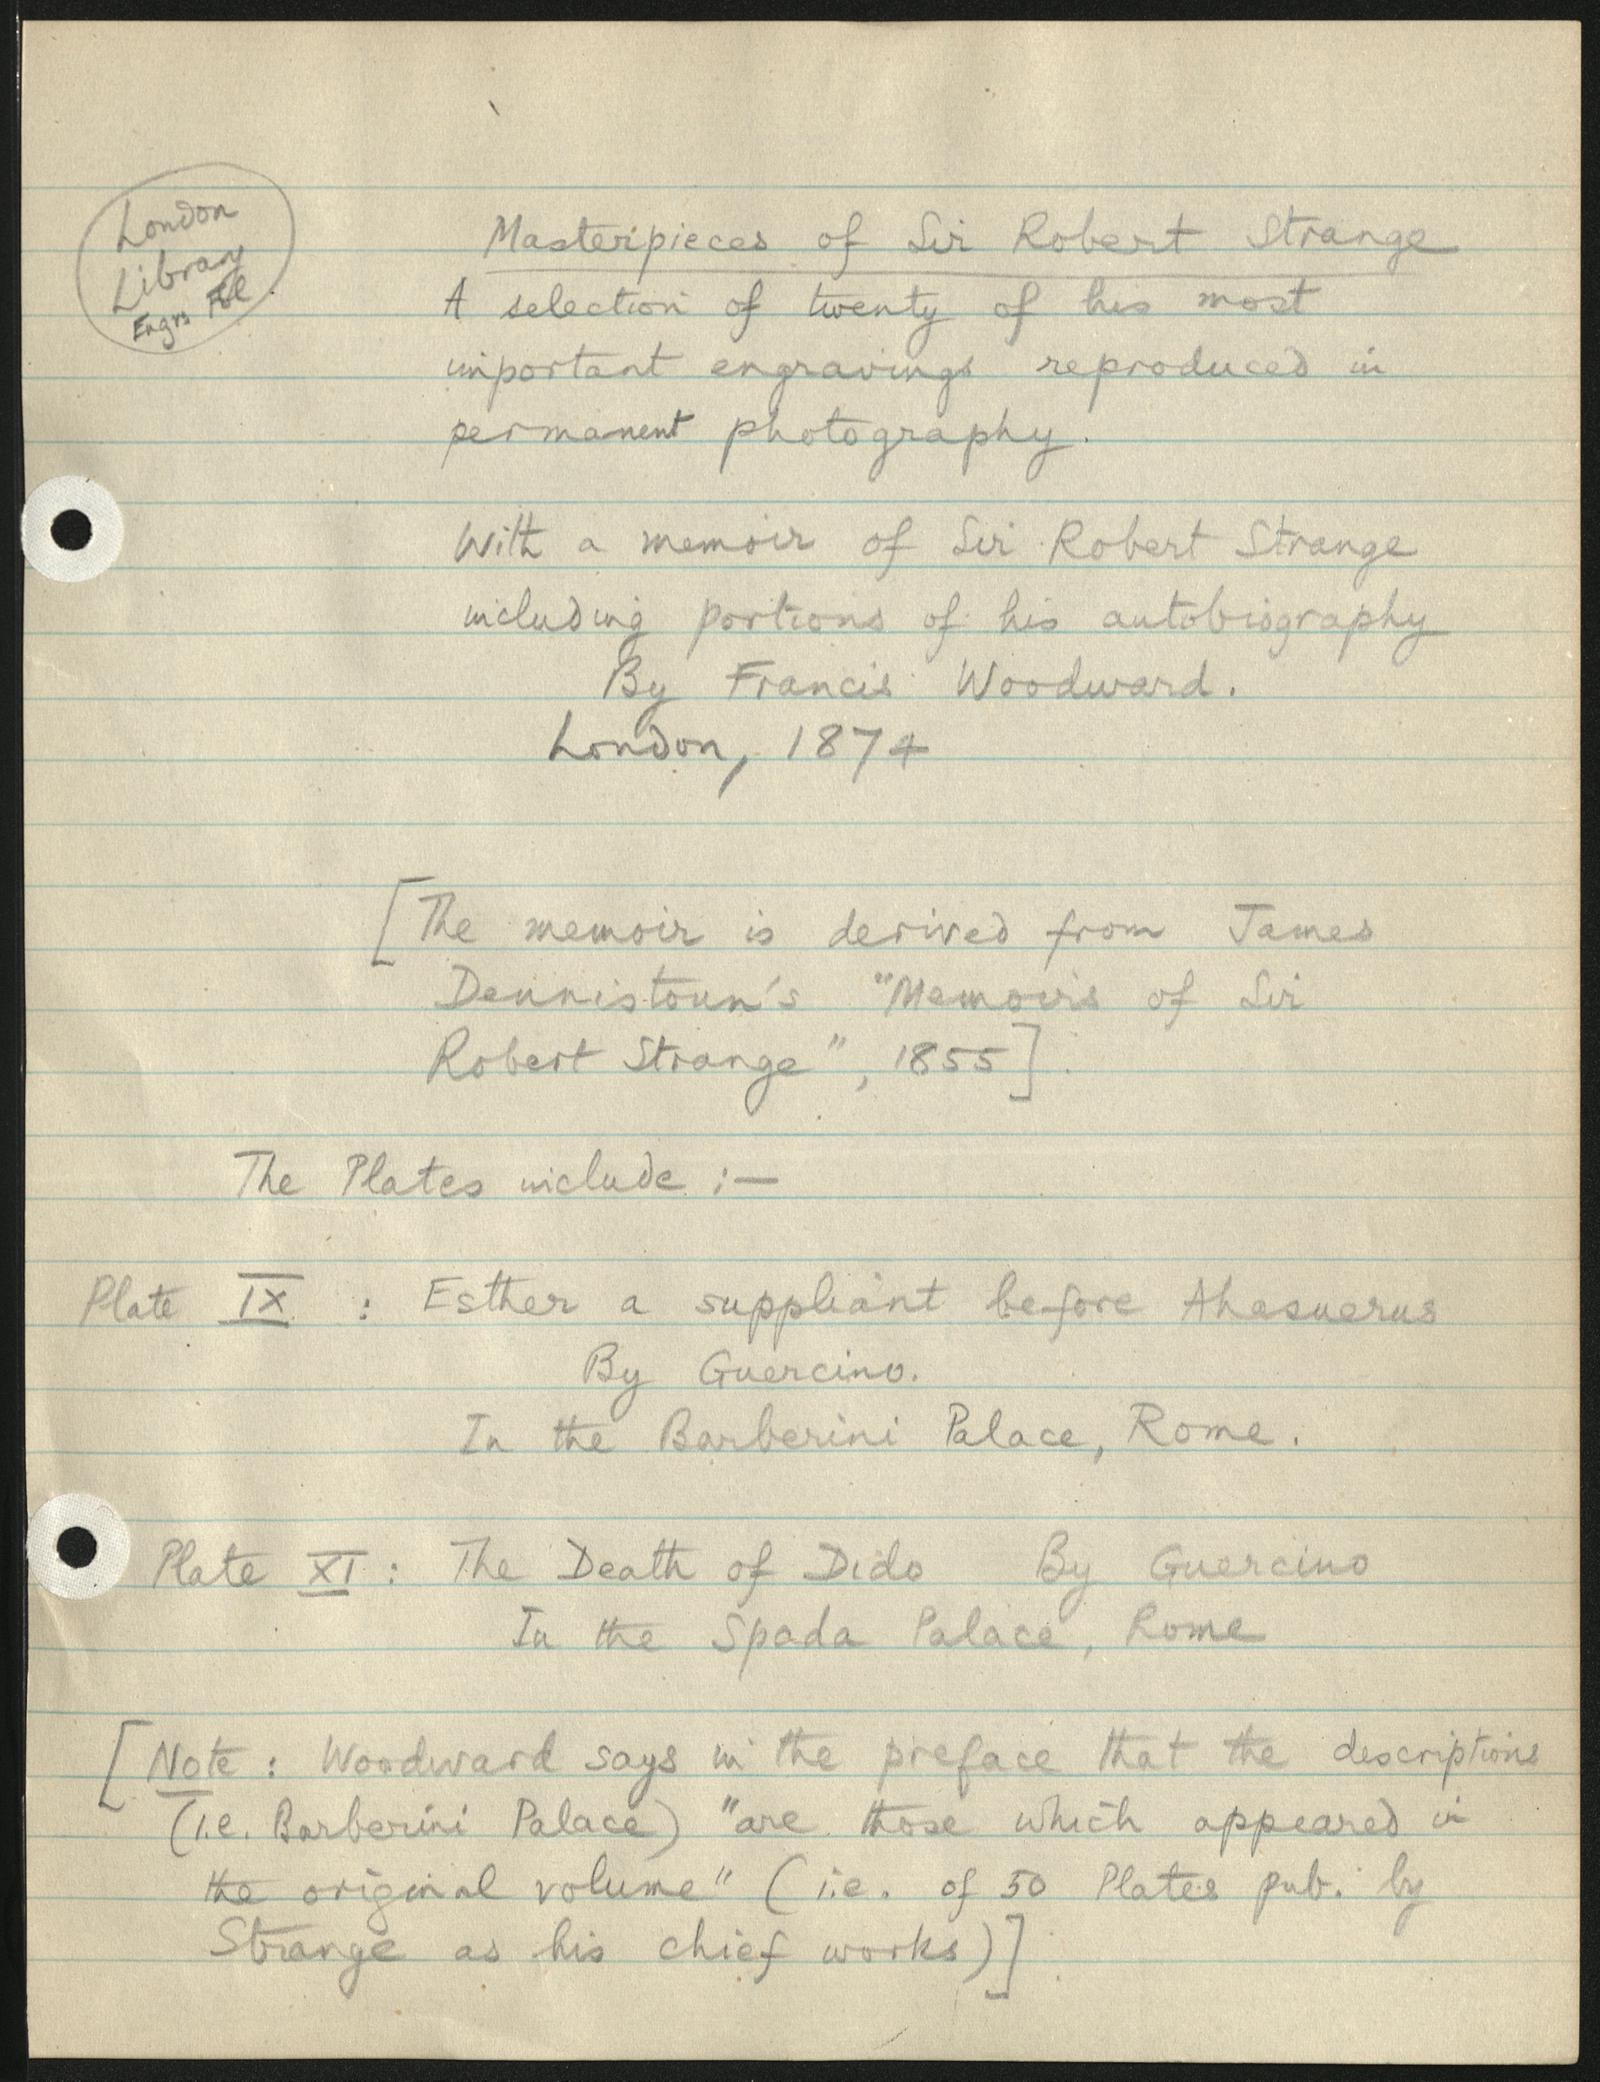 London
Library
Engrs Fol.
Masterpieces of Sir Robert Strange
A selection of twenty of his most
important engravings reproduced in
permanent photography.
With a memoir of Sir Robert Strange
including portions of his autobiography
By Francis Woodward.
London, 1874
[The memoir is derived from James
Dennistoun's "Memoirs of Sir
Robert Strange", 1855].
The Plates include :—
Plate IX : Esther a suppliant before Ahasuerus
By Guercino.
In the Barberini Palace, Rome.
Plate XI : The Death of Dido By Guercino
In the Spada Palace, Rome
[Note : Woodward says in the preface that the descriptions
(i.e. Barberini Palace) "are those which appeared in
the original volume" (i.e. of 50 Plates pub. by
Strange as his chief works)]